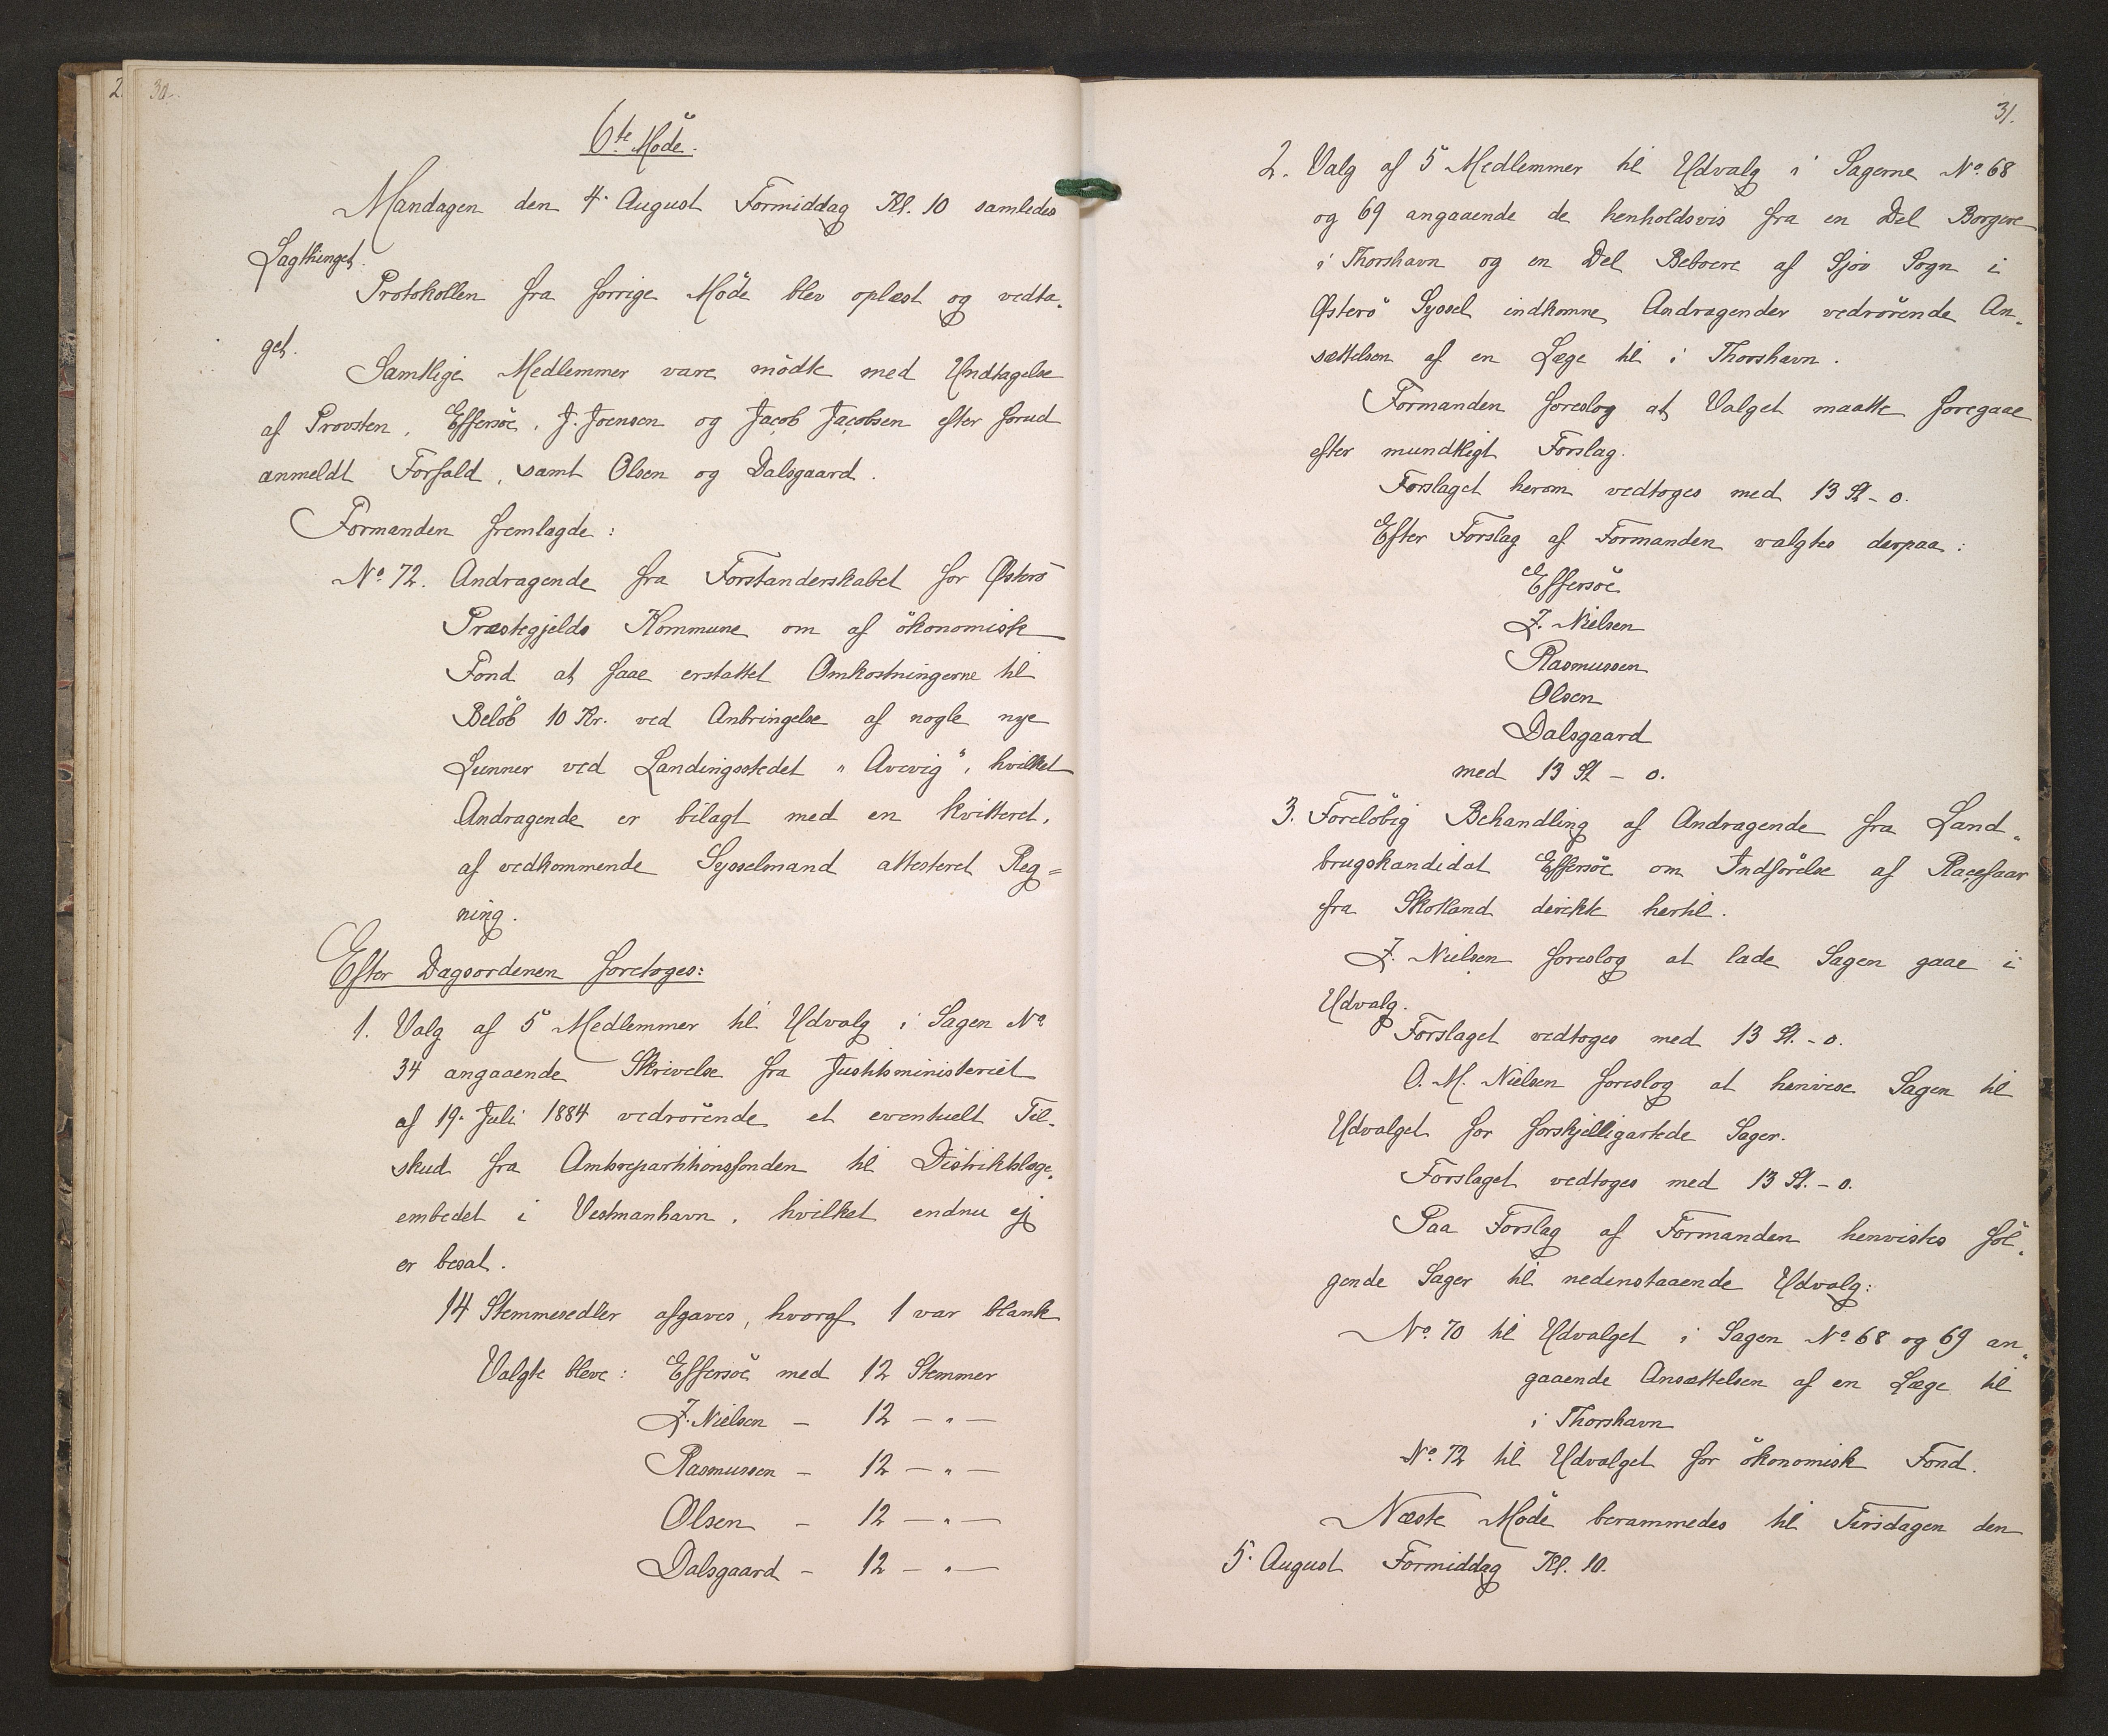 30.
6te Möde.
Mandagen den 4. August Formiddag Kl. 10 samledes
Lagthinget.
Protokollen fra forrige Möde blev oplæst og vedta-
get.
Samtlige Medlemmer vare mödte med Undtagelse
af Provsten, Effersöe, J. Joensen og Jacob Jacobsen efter forud
anmeldt Forfald, samt Olsen og Dalsgaard.
Formanden fremlagde:
No. 72. Andragende fra Forstanderskabet for Österö
Præstegjelds Kommune om af ökonomisk
Fond at faae erstattet Omkostningerne til
Belöb 10 Kr. ved Anbringelse af nogle nye
Lunner ved Landingsstedet "Avevig", hvilket
Andragende er bilagt med en kvitteret,
af vedkommende Sysselmand attesteret Reg=
ning.
Efter Dagsordenen foretoges:
1. Valg af 5 Medlemmer til Udvalg i Sagen No
34 angaaende Skrivelse fra Justitsministeriet
af 19. Juli 1884 vedrörende et eventuelt Til-
skud fra Amtsrepartitionsfonden til Distriktslæge-
embedet i Vestmanhavn, hvilket endnu ej
er besat.
14 Stemmesedler afgaves, hvoraf 1 var blank
Valgte bleve: Effersöe med 12 Stemmer
Z. Nielsen - 12 - " -
Rasmussen - 12 - " -
Olsen - 12 - " -
Dalsgaard - 12 - " -
31.
2. Valg af 5 Medlemmer til Udvalg i Sagerne No. 68
og 69 angaaende de henholdsvis fra en Del Borgere
i Thorshavn og en Del Beboere af Sjov Sogn i
Österö Syssel indkomne Andragender vedrörende An-
sættelsen af en Læge til i Thorshavn.
Formanden foreslog at Valget maatte foregaae
efter mundtligt Forslag.
Forslaget herom vedtoges med 13 St - 0.
Efter Forslag af Formanden valgtes derpaa:
Effersöe
Z. Nielsen
Rasmussen
Olsen
Dalsgaard
med 13 St - 0.
3. Forelöbig Behandling af Andragende fra Land-
brugskandidat Effersöe om Indförelse af Racefaar
fra Skotland direkte hertil.
Z. Nielsen foreslog at lade Sagen gaae i
Udvalg.
Forslaget vedtoges med 13 St. - 0.
O. M. Nielsen foreslog at henvise Sagen til
Udvalget for forskjelligartede Sager.
Forslaget vedtoges med 13 St. - 0.
Paa Forslag af Formanden henvistes föl-
gende Sager til nedenstaaende Udvalg:
No. 70 til Udvalget i Sagen No. 68 og 69 an-
gaaende Ansættelsen af en Læge til
i Thorshavn
No. 72 til Udvalget for ökonomisk Fond.
Næste Möde berammedes til Tirsdagen den
5. August Formiddag Kl. 10.